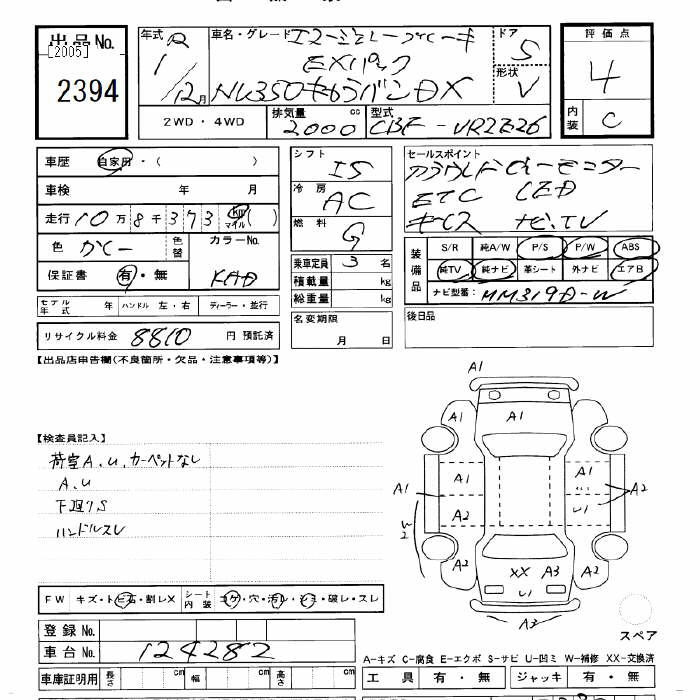 出品No.
[2005]
2394
年式 R
1/12月
車名・グレード
EXパック
NV350キャラバンDX
ドア 5
形状 V
評価点
4
内装 C
2WD・4WD
排気量 2000 cc
型式 CBF-VR2E26
車歴 自家用・( )
車検 年 月
走行 10万8千373 Km マイル ( )
色 グレー 色替
カラーNo. KAD
保証書 有・無
モデル年式 年 ハンドル 左・右 ディーラー・並行
リサイクル料金 8810 円 預託済
シフト IS
冷房 AC
燃料 G
乗車定員 3 名
積載量 kg
総重量 kg
名変期限
月 日
セールスポイント
アラウンドビューモニター
ETC LED
キーレス ナビ、TV
装備品
S/R 純A/W P/S P/W ABS
純TV 純ナビ 革シート 外ナビ エアB
ナビ型番: MM319D-W
後日品
【出品店申告欄(不良箇所・欠品・注意事項等)】
【検査員記入】
荷室A、U、カーペットなし
A、U
下廻りS
ハンドルスレ
A1
A1 A1
A1 A1
A1 A2
A2 U1
W2
A2 XX A3 A2
U1
A3
スペア
FW キズ・トビ石・割レX
シート内装 コゲ・穴・汚レ・シミ・破レ・スレ
登録No.
車台No. 124282
A-キズ C-腐食 E-エクボ S-サビ U-凹ミ W-補修 XX-交換済
車庫証明用 長さ cm 幅 cm 高さ cm
工具 有・無 ジャッキ 有・無